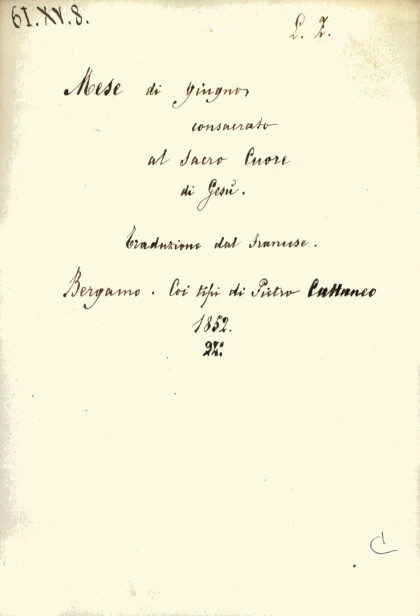 61.XV.8.
L. Z.
Mese di Giugno
consacrato
al Sacro Cuore
di Gesù.
Traduzione dal francese.
Bergamo. Coi tipi di Pietro Cattaneo
1852.
C